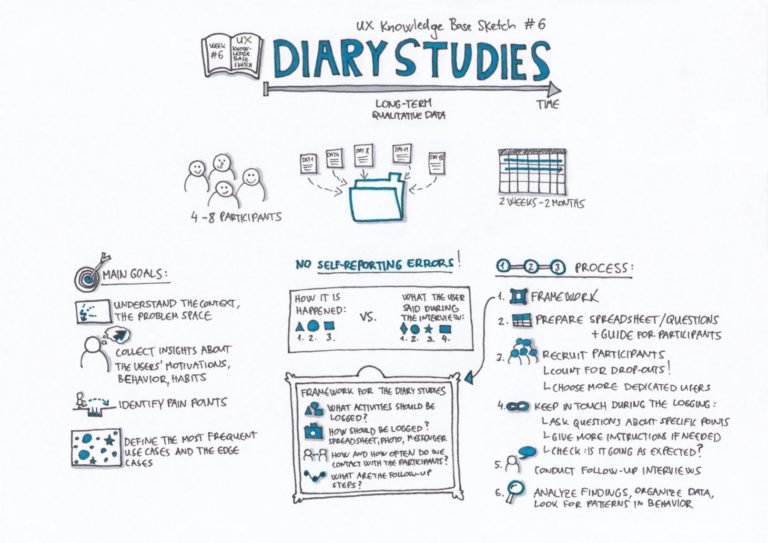 UX Knowledge Base Sketch #6
WEEK
#6
UX
KNOW-
LEDGE
BASE
SKETCH
DIARY STUDIES
LONG-TERM
QUALITATIVE DATA
TIME
4-8 PARTICIPANTS
DAY 1
DAY 8
DAY 11
2 WEEKS-2 MONTHS
MAIN GOALS:
UNDERSTAND THE CONTEXT,
THE PROBLEM SPACE
COLLECT INSIGHTS ABOUT
THE USERS' MOTIVATIONS,
BEHAVIOR, HABITS
IDENTIFY PAIN POINTS
DEFINE THE MOST FREQUENT
USE CASES AND THE EDGE
CASES
NO SELF-REPORTING ERRORS!
HOW IT IS
HAPPENED:
1. 2. 3.
VS.
WHAT THE USER
SAID DURING
THE INTERVIEW:
1. 2. 3. 4.
FRAMEWORK FOR THE DIARY STUDIES
WHAT ACTIVITIES SHOULD BE
LOGGED?
HOW SHOULD BE LOGGED?
SPREADSHEET, PHOTO, MESSENGER
HOW AND HOW OFTEN DO WE
CONTACT WITH THE PARTICIPANTS?
WHAT ARE THE FOLLOW-UP
STEPS?
1 2 3 PROCESS:
1. FRAMEWORK
2. PREPARE SPREADSHEET/QUESTIONS
+ GUIDE FOR PARTICIPANTS
2. RECRUIT PARTICIPANTS
COUNT FOR DROP-OUTS!
CHOOSE MORE DEDICATED USERS
4. KEEP IN TOUCH DURING THE LOGGING:
ASK QUESTIONS ABOUT SPECIFIC POINTS
GIVE MORE INSTRUCTIONS IF NEEDED
CHECK: IS IT GOING AS EXPECTED?
5. CONDUCT FOLLOW-UP INTERVIEWS
6. ANALYZE FINDINGS, ORGANIZE DATA,
LOOK FOR PATTERNS IN BEHAVIOR